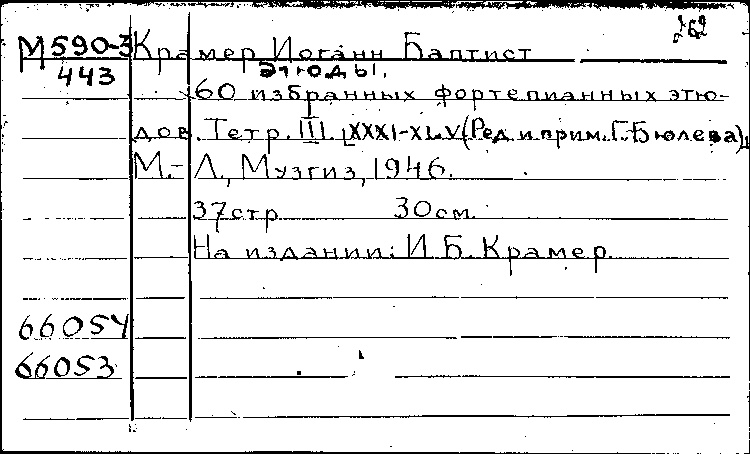 262
М590-3 Крамер Иоганн Баптист
443 Этюды.
60 избранных фортепианных этю-
дов. Тетр. III. [XXXI-XLV (Ред. и прим. Г. Бюлева)]
М.-Л., Музгиз, 1946.
37 стр 30 см.
На издании: И. Б. Крамер.
66054
66053